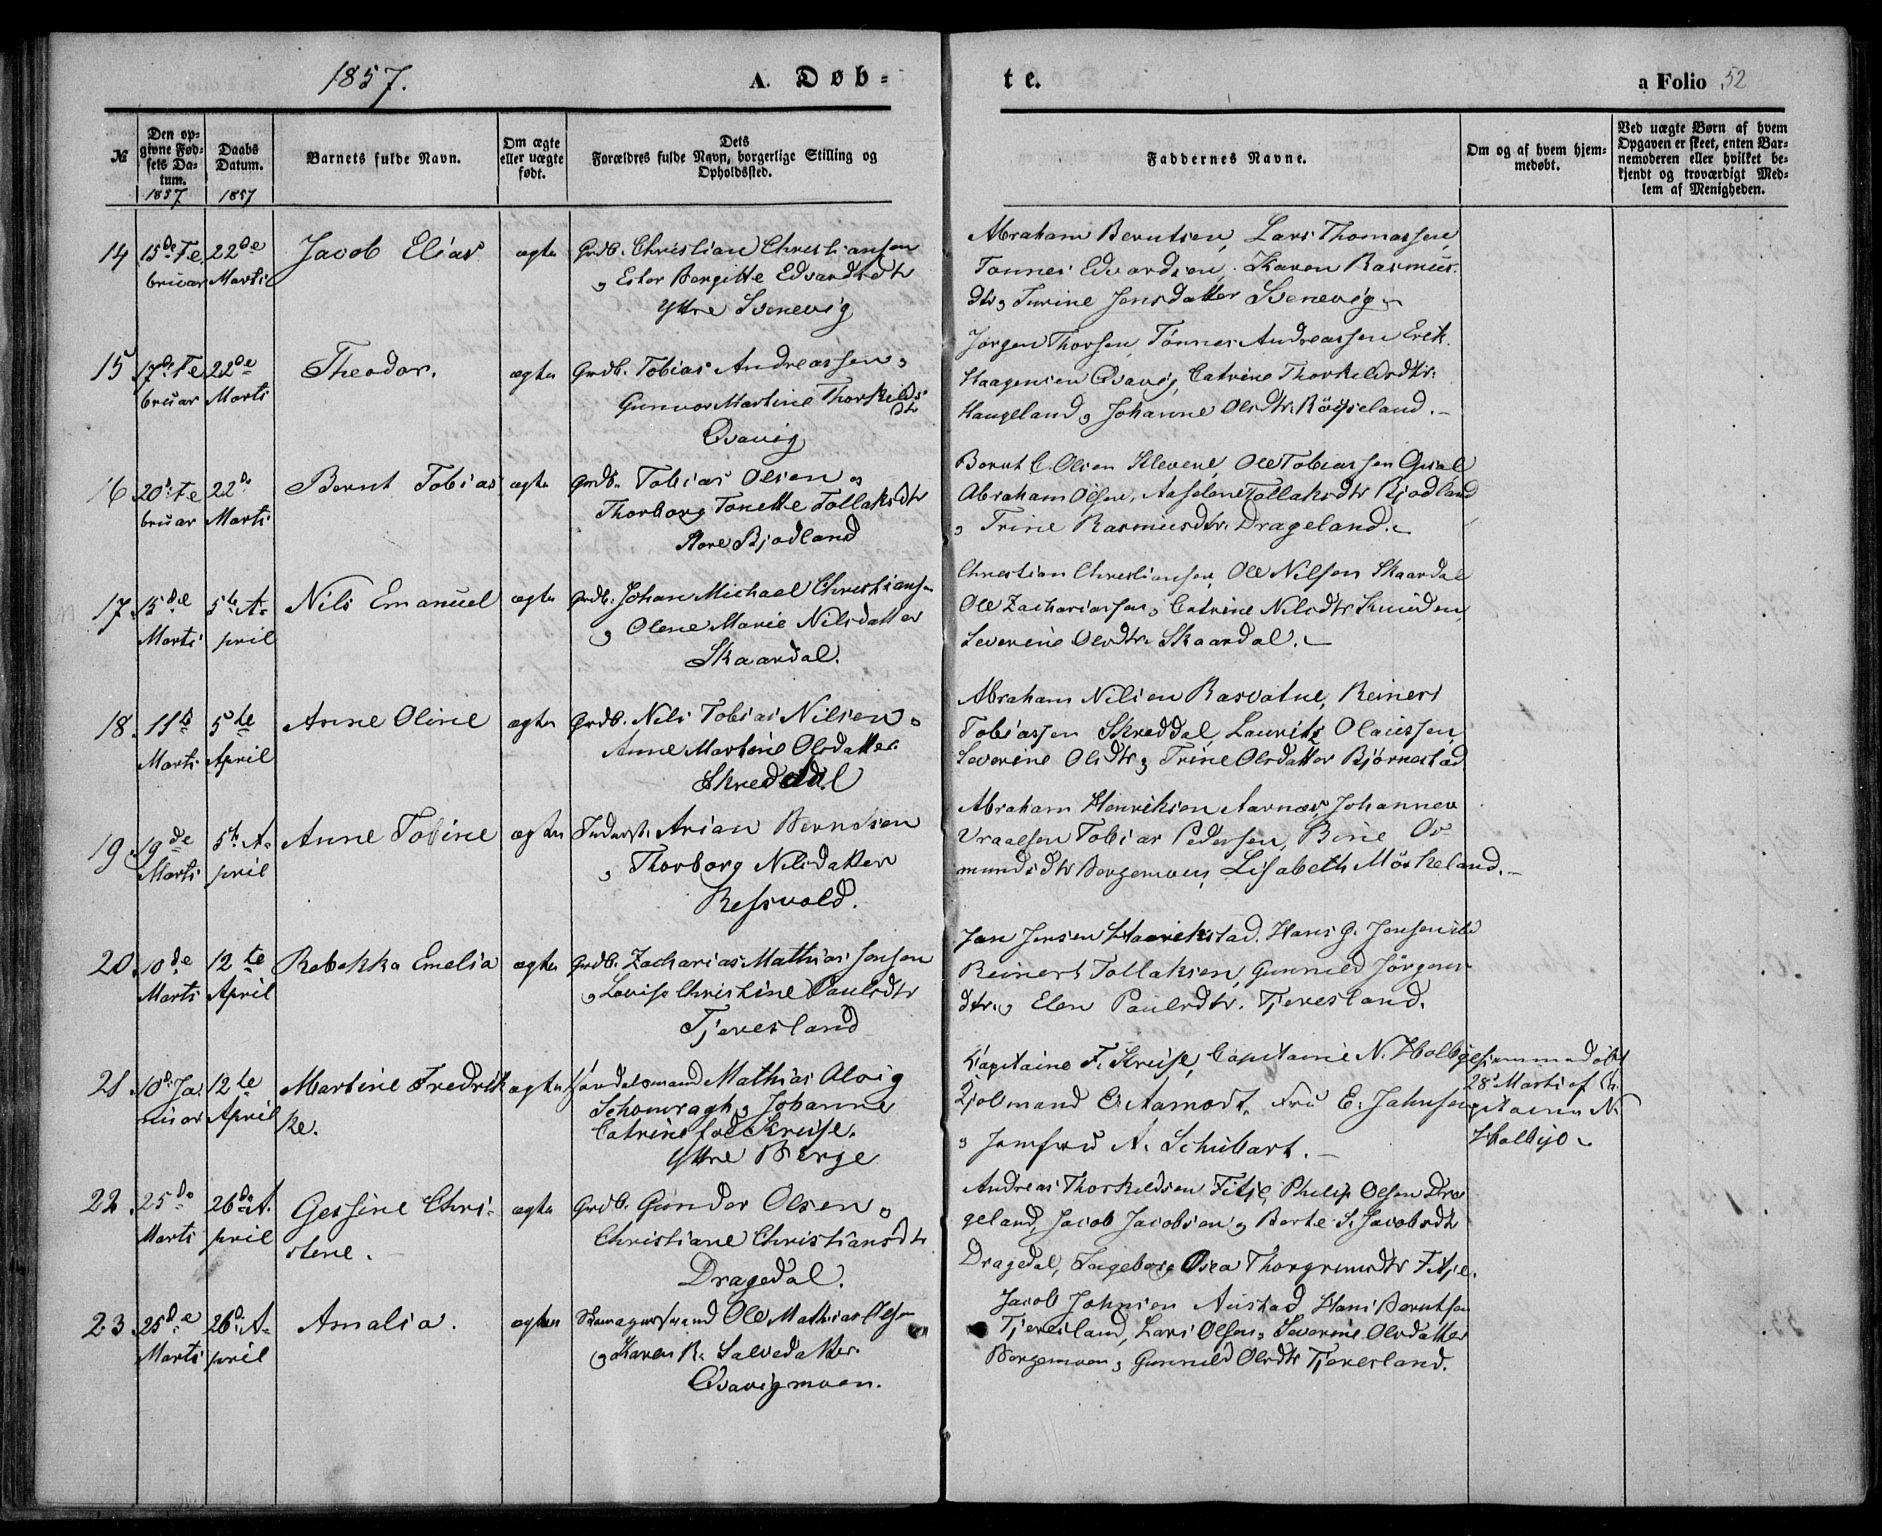 1857.
A. Døb=
te.
a Folio 52
№
Den op=
givne Fød=
sels Da=
tum.
1857
Daabs
Datum.
1857
Barnets fulde Navn.
Om ægte
eller uægte
født.
Dets
Forældres fulde Navn, borgerlige Stilling og
Opholdssted.
Faddernes Navne.
Om og af hvem hjem=
medøbt.
Ved uægte Børn af hvem
Opgaven er skeet, enten Bar=
nemoderen eller hvilket be=
kjendt og troværdigt Med=
lem af Menigheden.
14
15de Fe
bruar
22de
Marts
Jacob Elias
ægte
Grdb. Christian Christiansen
og Ester Bergitte Edvardsdtr
Yttre Svenevig
Abraham Berntsen, Lars Thomassen,
Tønnes Edvardsen, Karen Rasmus
dtr og Turine Jensdatter Svenevig
15
17de Fe
bruar
22de
Marts
Theodor.
ægte
Grdb. Tobias Andreassen og
Gunvor Martine Thorkilds
dtr
Qvavig
Jørgen Thorsen, Tønnes Andreassen Erik
Haagensen Qvavig, Catrine Thorkeldsdtr.
Haugeland og Johanne Olsdtr. Röyseland.
16
20de Fe
bruar
22de
Marts
Bernt Tobias
ægte
Grdb. Tobias Olsen og
Thorborg Tonette Tollaksdtr
Store Bjodland
Bernt C. Olsen Klevene, Ole Tobiassen
Abraham Olsen, Tollaksdtr Bjodland
og Trine Rasmusdtr. Drageland.
17.
15de
Marts
5te A=
pril
Nils Emanuel
ægte
Grdb. Johan Michael Christiansen
og Olene Marie Nilsdatter
Skaardal.
Christian Christiansen, Ole Nilsen Skaardal
Ole Zachariassen og Catrine Nilsdtr
Severine Olsdtr. Skaardal.
18.
11te
Marts
5te
April
Anne Oline
ægte
Grdb. Nils Tobias Nilsen og
Anne Martine Olsdatter.
Skreddal
Abraham Nilsen Rasvatne, Reinert
Tobiassen Skreddal Lauritz Olaussen,
Severine Olsdtr og Trine Olsdatter Bjørnestad
19.
19de
Marts
5te A=
pril
Anne Tobine
ægte
Inderst. Arian Berndsen
og Thorborg Nilsdatter
Resvold.
Abraham Henriksen Aarnæs, Johannes
Vraalsen Tobias Pedersen, Bine Os
mundsdtr Bergemoen, Lisabeth Mörkeland.
20.
10de
Marts
12te
April
Rebekka Emelia
ægte
Grdb. Zacharias Mathias Jensen
og Lovise Christine Paulsdtr
Tjeresland
Jens Jensen Haarikstad. Hans G. Jensen
Reinert Tollaksen, Gunnild Jörgens
dtr. og Elen Paulsdtr. Tjeresland.
21.
10de Ja
nuar
12te
April
Martine Fredrik
ke.
ægte
Handelsmand Mathias Alvig
og Johanne
Catrine fød Kruse.
Yttre Berge
Kapitaine F. Kruse, Capitaine N. Holbye
Tolmand C. Aamodt, Fru E. Jahnsen
og Jomfru A. Schubart.
Hjemmedøbt
28de Marts af Ca
pitaine N.
Holbye
22.
25de
Marts
26de A.
pril
Gesine Chri=
stene.
ægte
Grdb. Gunder Olsen og
Christiane Christiansdtr
Dragedal.
Andreas Thorkeldsen Fitje, Philip Olsen Dra
geland, Jacob Jacobsen og Berte S. Jacobsdtr
Dragedal, Ingeborg Thorgrimsdtr Fitje.
23.
25de
Marts
26de A=
pril
Amalia.
ægte
Skomagersvend Ole Mathias Olsen
og Karen R. Salvedatter.
Qvavigmoen.
Jacob Johnsen Austad, Hans Berntsen
Tjeresland, Lars Olsen, Severine Olsdatter
Bergemoen og Gunnild Olsdtr Tjeresland.